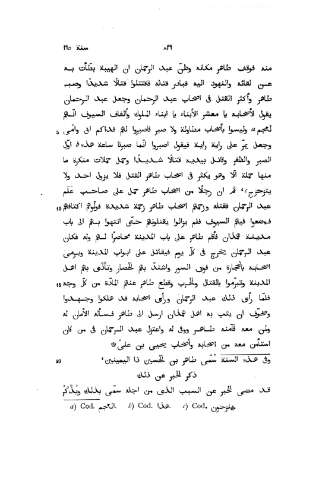 سنة ١٩٥ ٨٢٩
منه فوقف طاهر مكانه وظنّ عبد الرحمان ان الهيبة بطّأت به
عن لقائه والنهود اليه فبادر قتاله فاقتتلوا قتالًا شديدًا وصبر
طاهر وأكثر القتل فى اصحاب عبد الرحمان وجعل عبد الرحمان
يقول لأصحابه يا معشر الأبناء يا ابناء الملوك وألفاف السيوف انّهم
العجم a) وليسوا بأصحاب مطاولة ولا صبر فاصبروا لهم فداكم ابى وأمى
وجعل يمرّ على راية راية فيقول اصبروا انما صبرنا ساعة هذا b) اوّل
الصبر والظفر وقاتل بيديه قتالًا شديدًا وحمل حملات منكرة ما
منها حملة الّا وهو يكثر فى اصحاب طاهر القتل فلا يزول احد ولا
يتزحزح c) ثم ان رجلًا من اصحاب طاهر حمل على صاحب علم
عبد الرحمان فقتله وزحمهم اصحاب طاهر زحمة شديدة فولّوهم اكتافهم
فوضعوا فيهم السيوف فلم يزالوا يقتلونهم حتّى انتهوا بهم الى باب
مدينة همذان فأقام طاهر على باب المدينة محاصرًا لهم وله فكان
عبد الرحمان يخرج فى كلّ يوم فيقاتل على ابواب المدينة ويرمى
اصحابه بالحجارة من فوق السور واشتدّ بهم الحصار وتأذّى بهم اهل
المدينة وتبرّموا بالقتال والحرب وقطع طاهر عنهم المادّة من كل وجه
فلمّا رأى ذلك عبد الرحمان ورأى اصحابه قد هلكوا وجهدوا
وتخوّف ان يثب به اهل همذان ارسل الى طاهر فسأله الأمان له
ولمن معه فآمنه طاهر ووفى له واعتزل عبد الرحمان فى من كان
استأمن معه من اصحابه وأصحاب يحيى بن علىّ
وفى هذه السنة سُمّى طاهر بن الحسين ذا اليمينين
ذكر الخبر عن ذلك
قد مضى الخبر عن السبب الذى من اجله سمّى بذلك ونذكر
a) Cod. العجم. b) Cod. هذا. c) Cod.